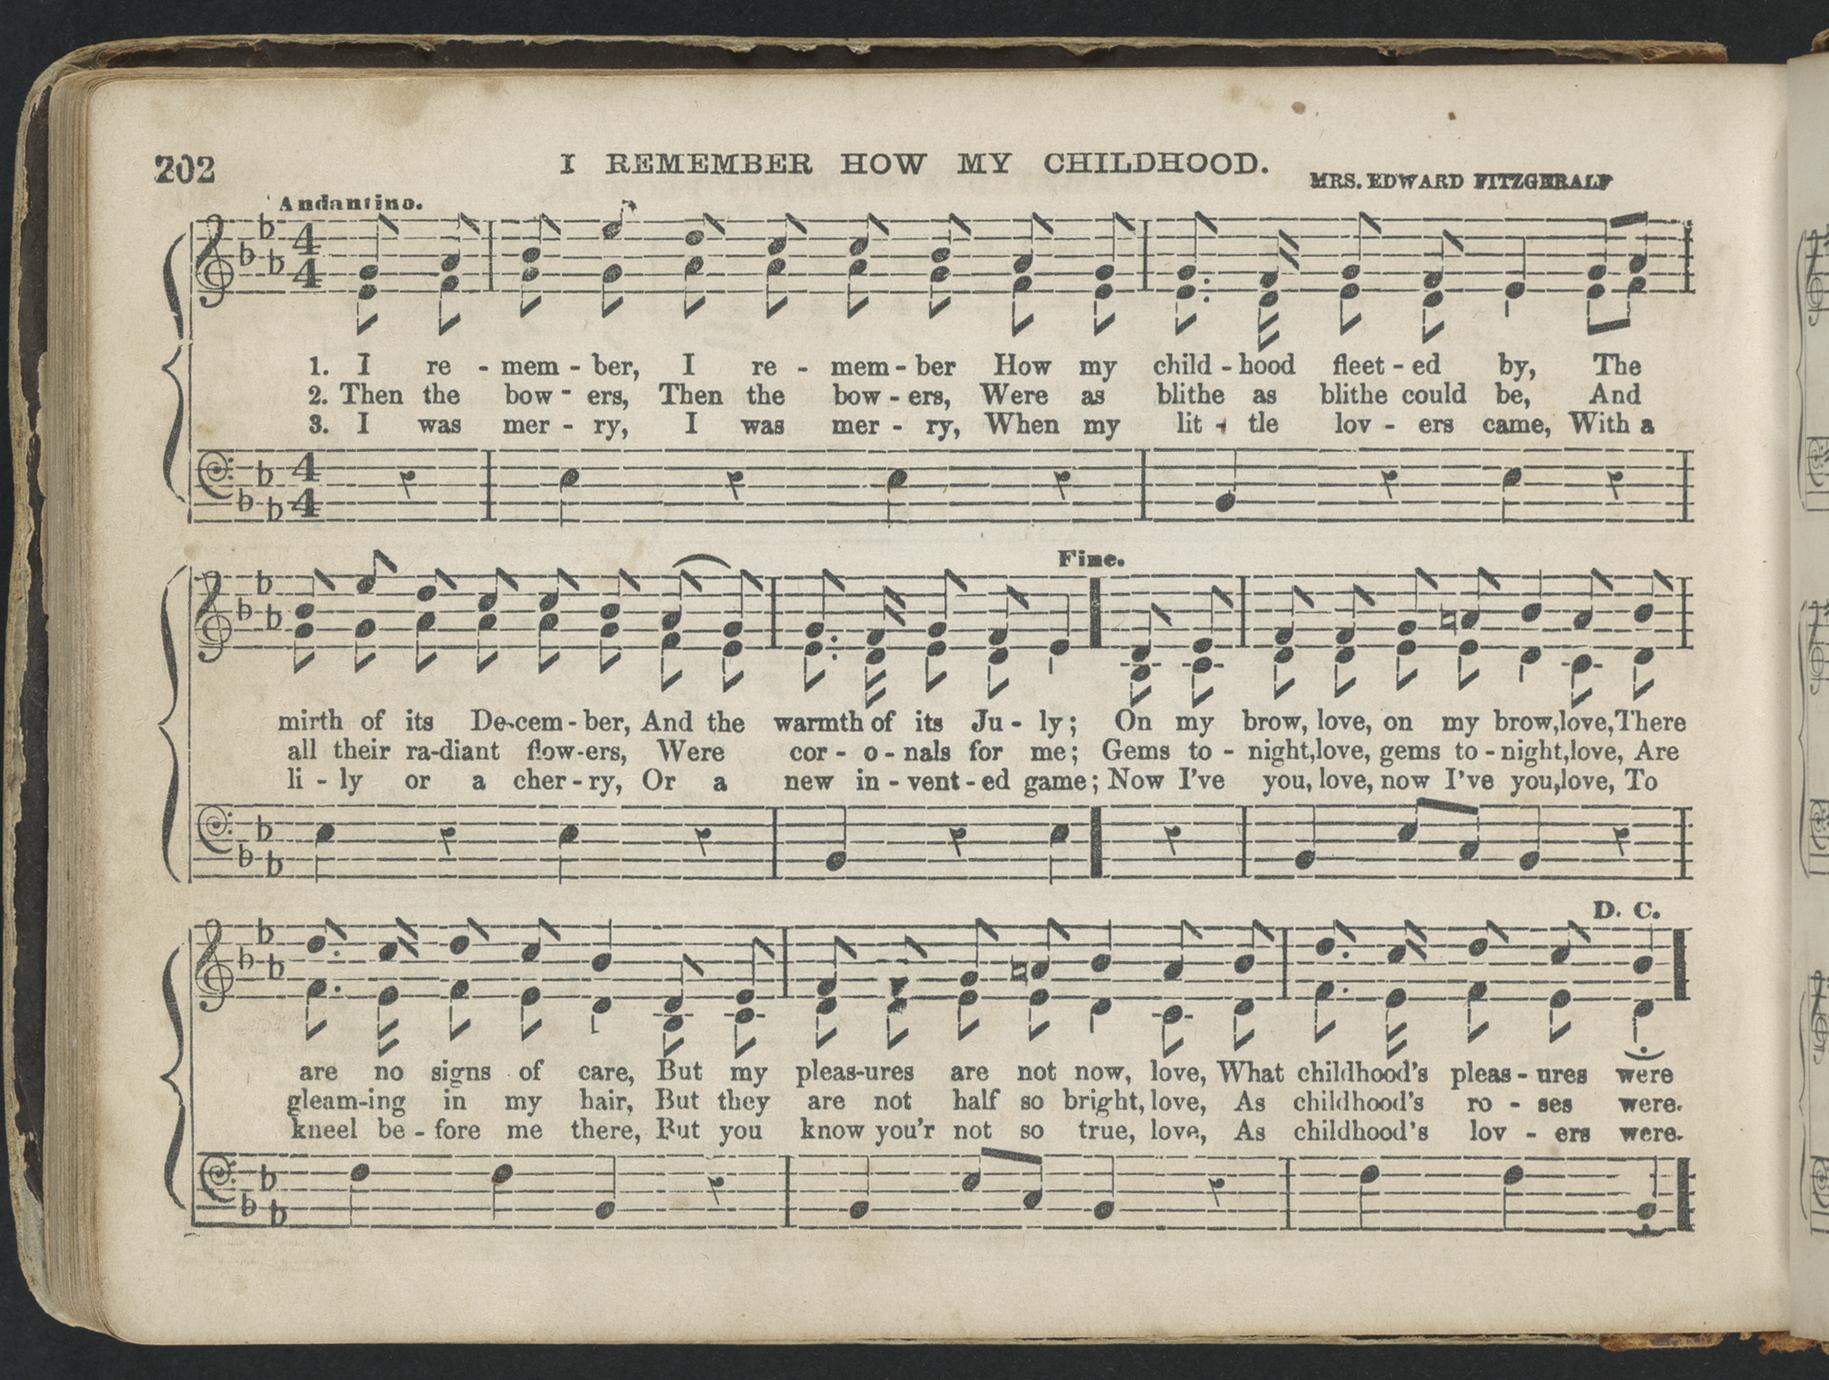 202
I REMEMBER HOW MY CHILDHOOD.
MRS. EDWARD FITZGERALF
Andantino.
1. I re - mem - ber, I re - mem - ber How my child - hood fleet - ed by, The
2. Then the bow - ers, Then the bow - ers, Were as blithe as blithe could be, And
3. I was mer - ry, I was mer - ry, When my lit - tle lov - ers came, With a
Fine.
mirth of its De-cem - ber, And the warmth of its Ju - ly; On my brow, love, on my brow,love,There
all their ra-diant flow-ers, Were cor - o - nals for me; Gems to - night,love, gems to - night,love, Are
li - ly or a cher - ry, Or a new in - vent - ed game; Now I've you, love, now I've you,love, To
D. C.
are no signs of care, But my pleas-ures are not now, love, What childhood's pleas - ures were
gleam-ing in my hair, But they are not half so bright, love, As childhood's ro - ses were.
kneel be - fore me there, But you know you'r not so true, love, As childhood's lov - ers were.